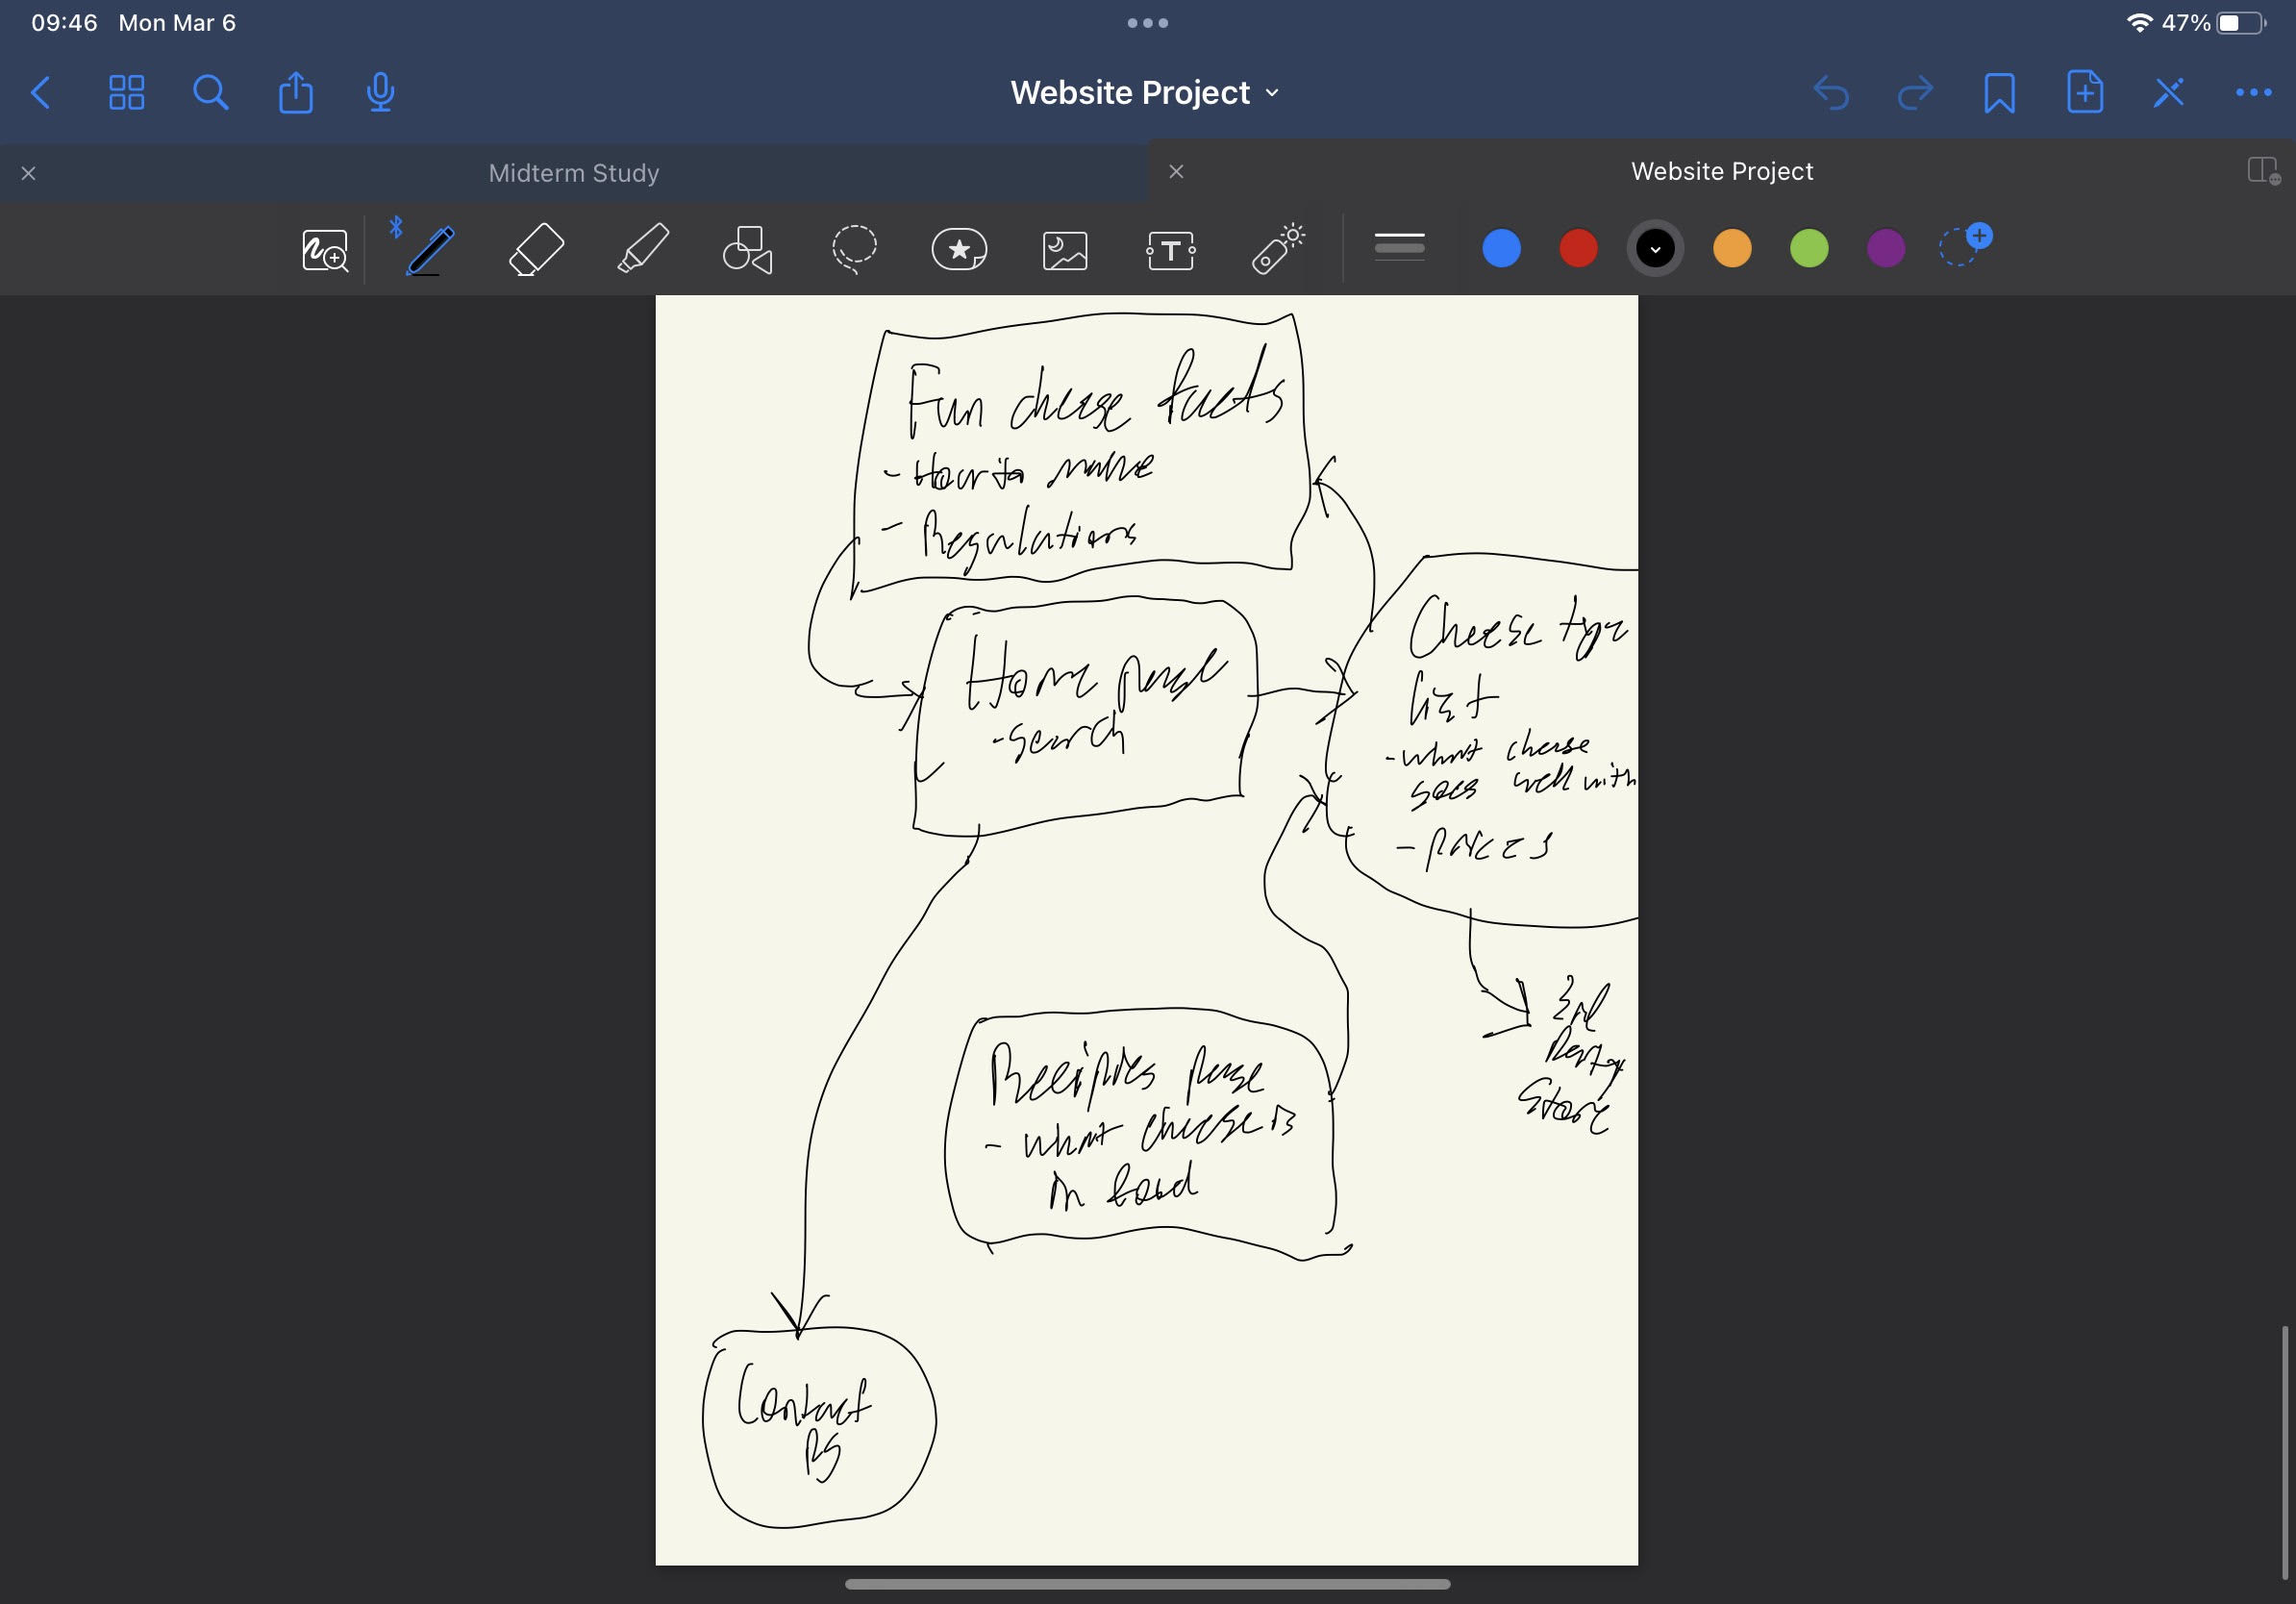 09:46 Mon Mar 6
47%
Website Project
Midterm Study
Website Project
T
Fun cheese facts
- How to make
- Regulations
Home page
- search
Cheese type
list
- what cheese
goes well with
- prices
3rd
Party
Store
Recipies page
- what cheese is
in food
Contact